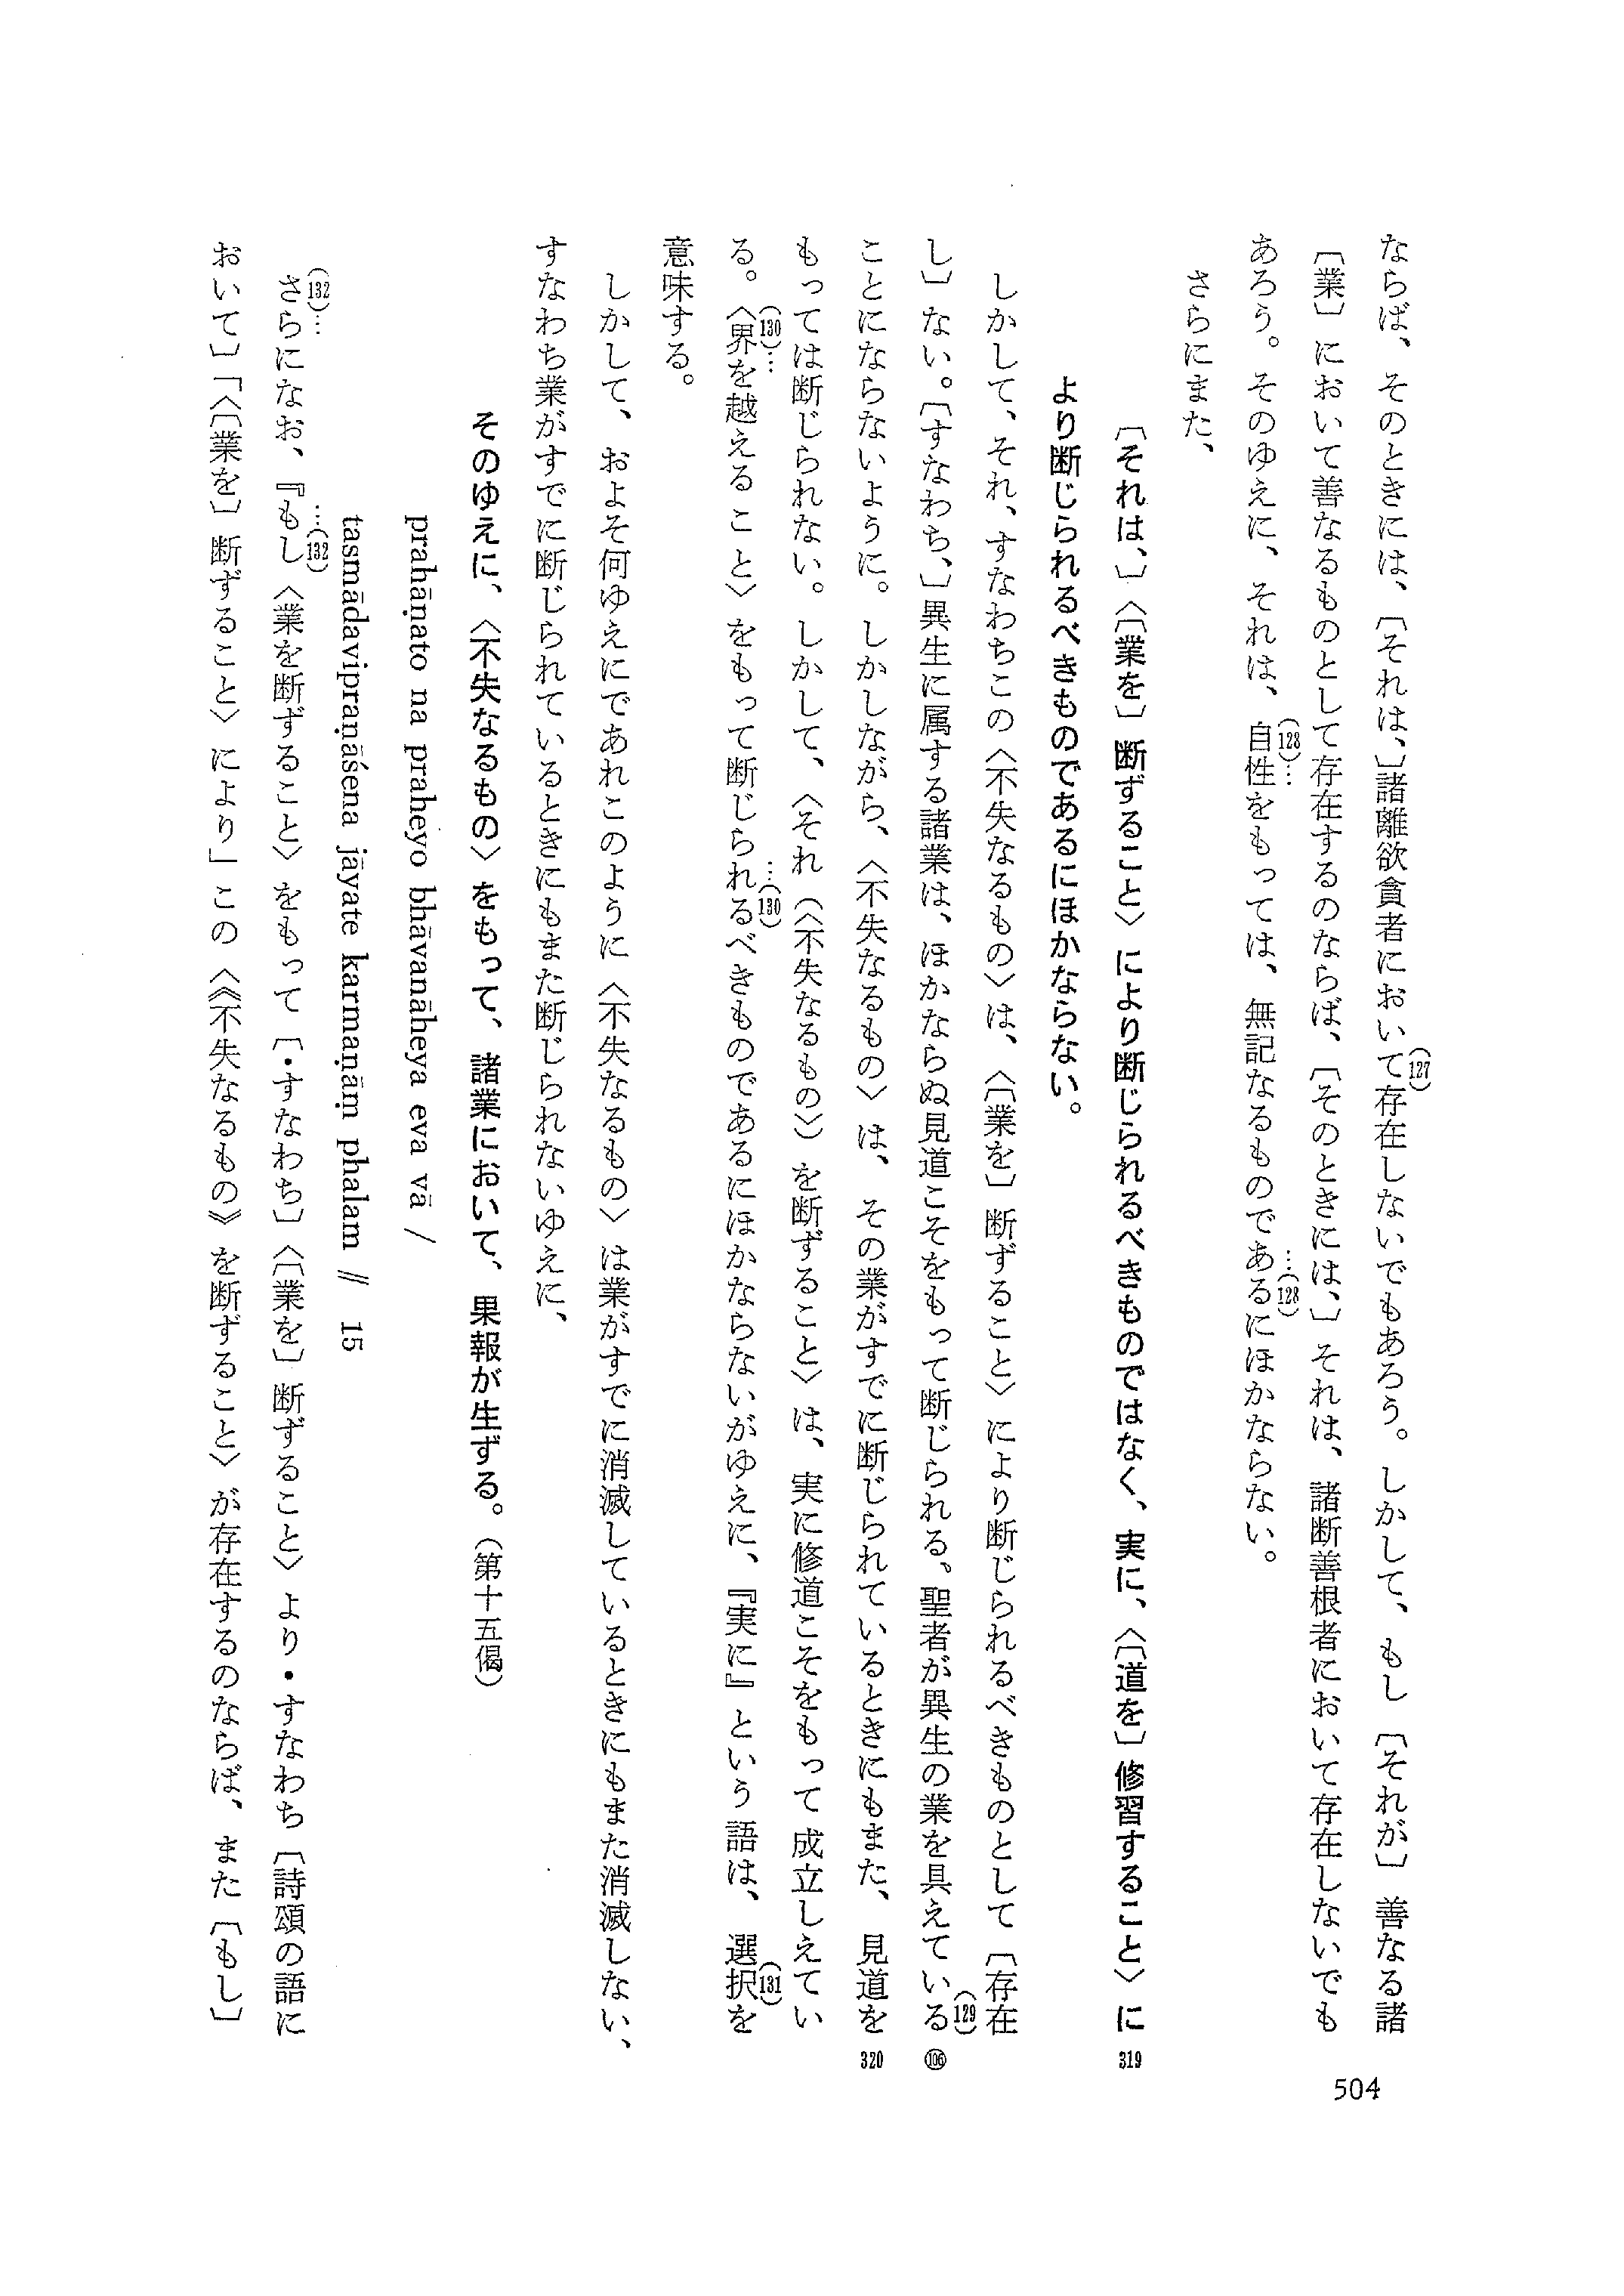 ならば、そのときには、〔それは、〕諸離欲貪者において(127)存在しないでもあろう。しかして、もし〔それが〕善なる諸
〔業〕において善なるものとして存在するのならば、〔そのときには、〕それは、諸断善根者において存在しないでも
あろう。そのゆえに、それは、(128)…自性をもっては、無記なるものである…(128)にほかならない。
さらにまた、
〔それは、〕〈〔業を〕断ずること〉により断じられるべきものではなく、実に、〈〔道を〕修習すること〉に 319
より断じられるべきものであるにほかならない。
しかして、それ、すなわちこの〈不失なるもの〉は、〈〔業を〕断ずること〉により断じられるべきものとして〔存在
し〕ない。〔すなわち、〕異生に属する諸業は、ほかならぬ見道こそをもって断じられる、聖者が異生の業を具えている(129) ⑯106
ことにならないように。しかしながら、〈不失なるもの〉は、その業がすでに断じられているときにもまた、見道を 320
もっては断じられない。しかして、〈それ(〈不失なるもの〉)を断ずること〉は、実に修道こそをもって成立しえてい
る。(130)…〈界を越えること〉をもって断じられ…(130)るべきものであるにほかならないがゆえに、『実に』という語は、選択(131)を
意味する。
しかして、およそ何ゆえにであれこのように〈不失なるもの〉は業がすでに消滅しているときにもまた消滅しない、
すなわち業がすでに断じられているときにもまた断じられないゆえに、
そのゆえに、〈不失なるもの〉をもって、諸業において、果報が生ずる。(第十五偈)
prahāṇato na praheyo bhāvanāheya eva vā /
tasmādavipraṇāśena jāyate karmaṇāṃ phalam // 15
(132)…さらになお、『もし…(132)〈業を断ずること〉をもって〔・すなわち〕〈〔業を〕断ずること〉より・すなわち〔詩頌の語に
おいて〕「〈〔業を〕断ずること〉により」この〈《不失なるもの》を断ずること〉が存在するのならば、また〔もし〕
504